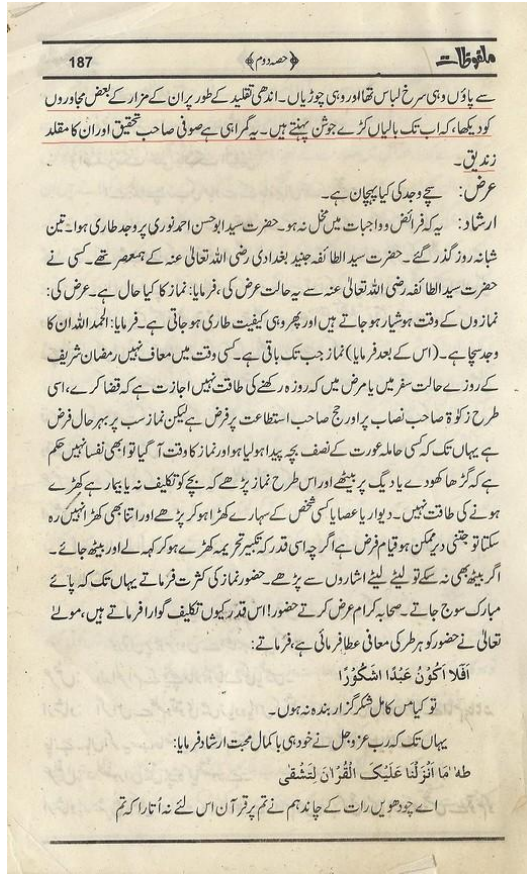 ملفوظات ﴿حصہ دوم﴾ 187
سے پاؤں وہی سرخ لباس تھا اور وہی چوڑیاں۔ اندھی تقلید کے طور پر ان کے مزار کے بعض مجاوروں
کو دیکھا، کہ اب تک بالیاں کڑے جوشن پہنتے ہیں۔ یہ گمراہی ہے صوفی صاحب تحقیق اور ان کا مقلد
زندیق۔
عرض: سچے وجد کی کیا پہچان ہے۔
ارشاد: یہ کہ فرائض و واجبات میں مخل نہ ہو۔ حضرت سید ابو حسن احمد نوری پر وجد طاری ہوا۔ تین
شبانہ روز گذر گئے۔ حضرت سید الطائفہ جنید بغدادی رضی اللہ تعالیٰ عنہ کے ہمعصر تھے۔ کسی نے
حضرت سید الطائفہ رضی اللہ تعالیٰ عنہ سے یہ حالت عرض کی، فرمایا: نماز کا کیا حال ہے۔ عرض کی:
نمازوں کے وقت ہوشیار ہو جاتے ہیں اور پھر وہی کیفیت طاری ہو جاتی ہے۔ فرمایا: الحمدللہ ان کا
وجد سچا ہے۔ (اس کے بعد فرمایا) نماز جب تک باقی ہے۔ کسی وقت میں معاف نہیں رمضان شریف
کے روزے حالت سفر میں یا مرض میں کہ روزہ رکھنے کی طاقت نہیں اجازت ہے کہ قضا کرے، اسی
طرح زکوٰۃ صاحب نصاب پر اور حج صاحب استطاعت پر فرض ہے لیکن نماز سب پر بہر حال فرض
ہے یہاں تک کہ کسی حاملہ عورت کے نصف بچہ پیدا ہو لیا ہو اور نماز کا وقت آ گیا تو ابھی نفسا نہیں حکم
ہے کہ گڑھا کھودے یا دیگ پر بیٹھے اور اس طرح نماز پڑھے کہ بچے کو تکلیف نہ یا بیمار ہے کھڑے
ہونے کی طاقت نہیں۔ دیوار یا عصا یا کسی شخص کے سہارے کھڑا ہو کر پڑھے اور اتنا بھی کھڑا نہیں رہ
سکتا تو جتنی دیر ممکن ہو قیام فرض ہے اگر چہ اسی قدر کہ تکبیر تحریمہ کھڑے ہو کر کہہ لے اور بیٹھ جائے۔
اگر بیٹھ بھی نہ سکے تو لیٹے لیٹے اشاروں سے پڑھے۔ حضور نماز کی کثرت فرماتے یہاں تک کہ پائے
مبارک سوج جاتے۔ صحابہ کرام عرض کرتے حضور! اس قدر کیوں تکلیف گوارا فرماتے ہیں، مولےٰ
تعالیٰ نے حضور کو ہر طر کی معافی عطا فرمائی ہے، فرماتے:
اَفَلَا اَکُوْنُ عَبْدًا اشَکُوْرًا
تو کیا میں کامل شکر گزار بندہ نہ ہوں۔
یہاں تک کہ رب عزوجل نے خود ہی با کمال محبت ارشاد فرمایا:
طه ٰ مَا اَنْزَلْنَا عَلَیْکَ الْقُرْاٰنَ لِتَشْقٰی
اے چودھویں رات کے چاند ہم نے تم پر قرآن اس لئے نہ اُتارا کہ تم